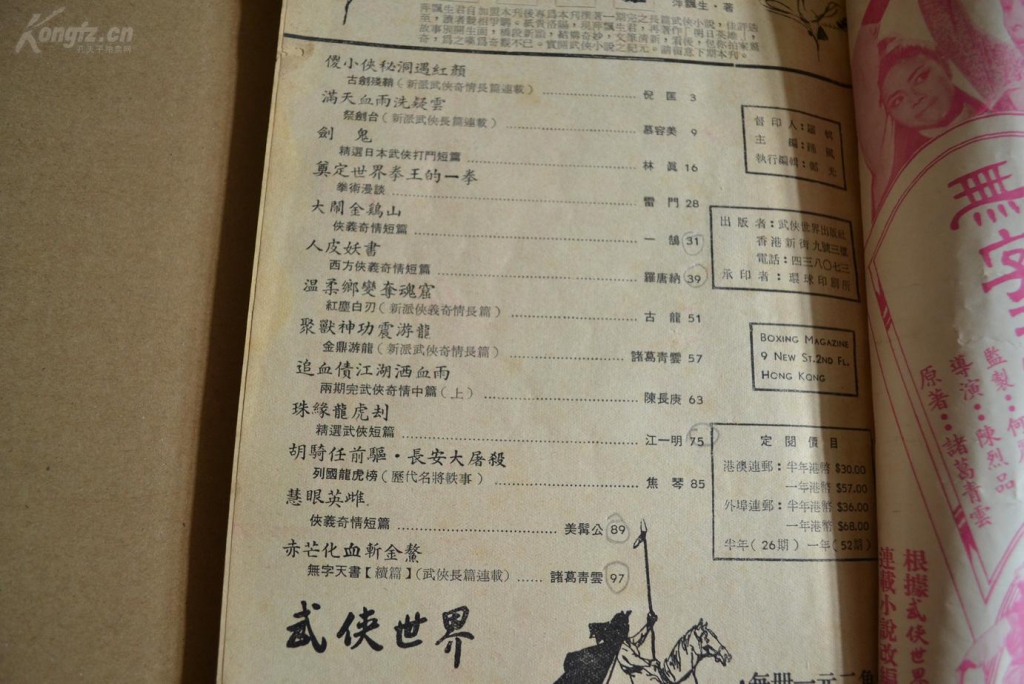 Kongfz.cn
孔夫子旧书网
萍飄生·著
傻小俠秘洞遇紅顏
古劍殘鞘(新派武俠奇情長篇連載) 倪匡 3
滿天血雨洗疑雲
祭劍台(新派武俠奇情長篇連載) 慕容美 9
劍鬼
精選日本武俠打鬥短篇 林眞 16
奠定世界拳王的一拳
拳術漫談 雷門 28
大鬧金鷄山
俠義奇情短篇 一鵠 31
人皮妖書
西方俠義奇情短篇 羅唐納 39
温柔鄉變奪魂窟
紅塵白刃(新派俠義奇情長篇) 古龍 51
聚獸神功震游龍
金鼎游龍(新派武俠奇情長篇) 諸葛青雲 57
追血債江湖洒血雨
兩期完武俠奇情中篇(上) 陳長庚 63
珠緣龍虎刦
精選武俠短篇 江一明 75
胡騎任前驅·長安大屠殺
列國龍虎榜(歷代名將軼事) 焦琴 85
慧眼英雌
俠義奇情短篇 美髯公 89
赤芒化血斬金鰲
無字天書【續篇】(武俠長篇連載) 諸葛青雲 97
武俠世界
督印人:羅
主編:
執行編輯:鄭
出版者:武俠世界出版社
香港新街九號三樓
電話:四三八〇七三
承印者:環球印刷所
BOXING MAGAZINE
9 NEW ST. 2ND FL.
HONG KONG
定閱價目
港澳連郵:半年港幣 $30.00
一年港幣 $57.00
外埠連郵:半年港幣 $36.00
一年港幣 $68.00
半年(26期)一年(52期)
每冊一元二角
無字
監製:何
導演:陳烈品
原著:諸葛青雲
根據武俠世界
連載小說改編